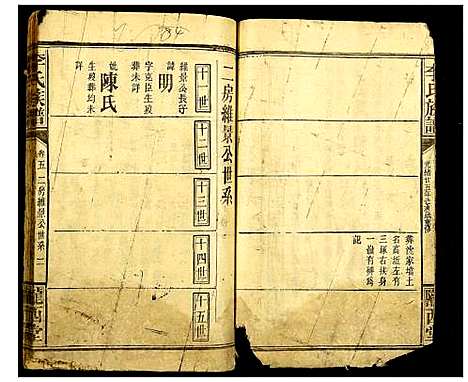 李氏族譜
隴西堂
葬沈家壋土
名高坵左有
三塚右挨身
一塚有碑為
記
二房維景公世系
十一世
十二世
十三世
十四世
十五世
維景公長子
諱明
字克臣生殁
葬未詳
妣陳氏
生殁葬均未
詳
李氏族譜
卷五二房維景公世系
隴西堂